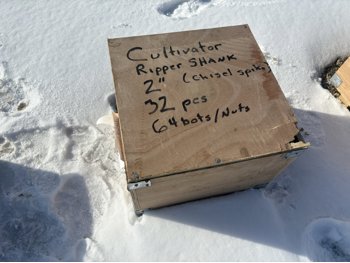 Cultivator
Ripper SHANK
2" (chisel spike)
32 pcs
64 bots/Nuts